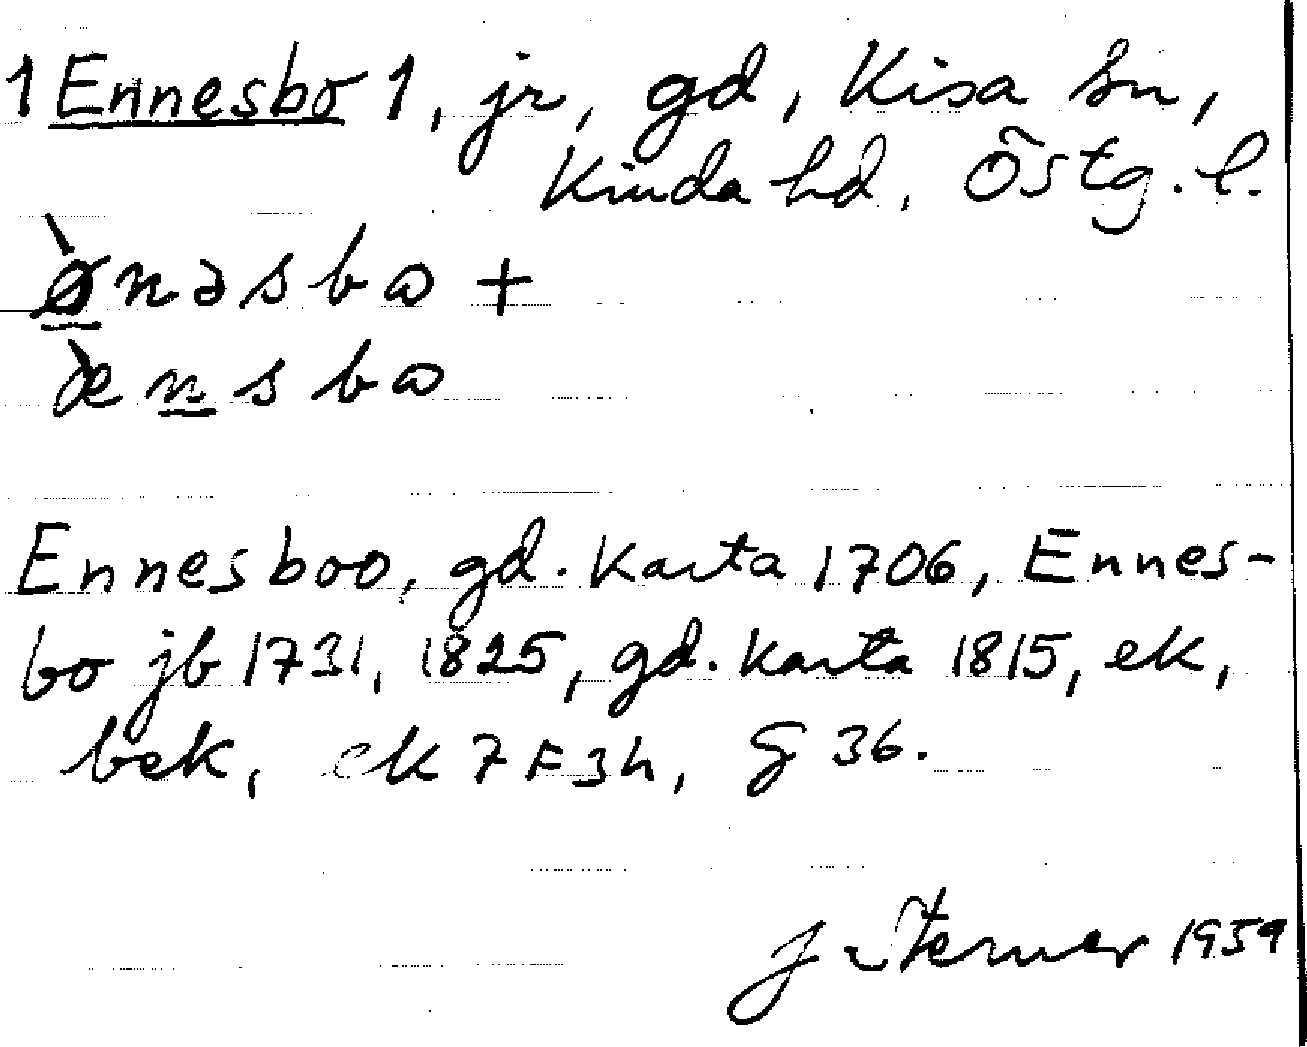 1 Ennesbo 1, jr, gd, Kisa sn,
Kinda hd, Östg. l.
ø̀nəsbɷ +
æ̀nsbɷ
Ennesboo, gd. Karta 1706, Ennes-
bo jb 1731, 1825, gd. Karta 1815, ek,
bek, ek 7 F 3h, G 36.
J Sterner 1959